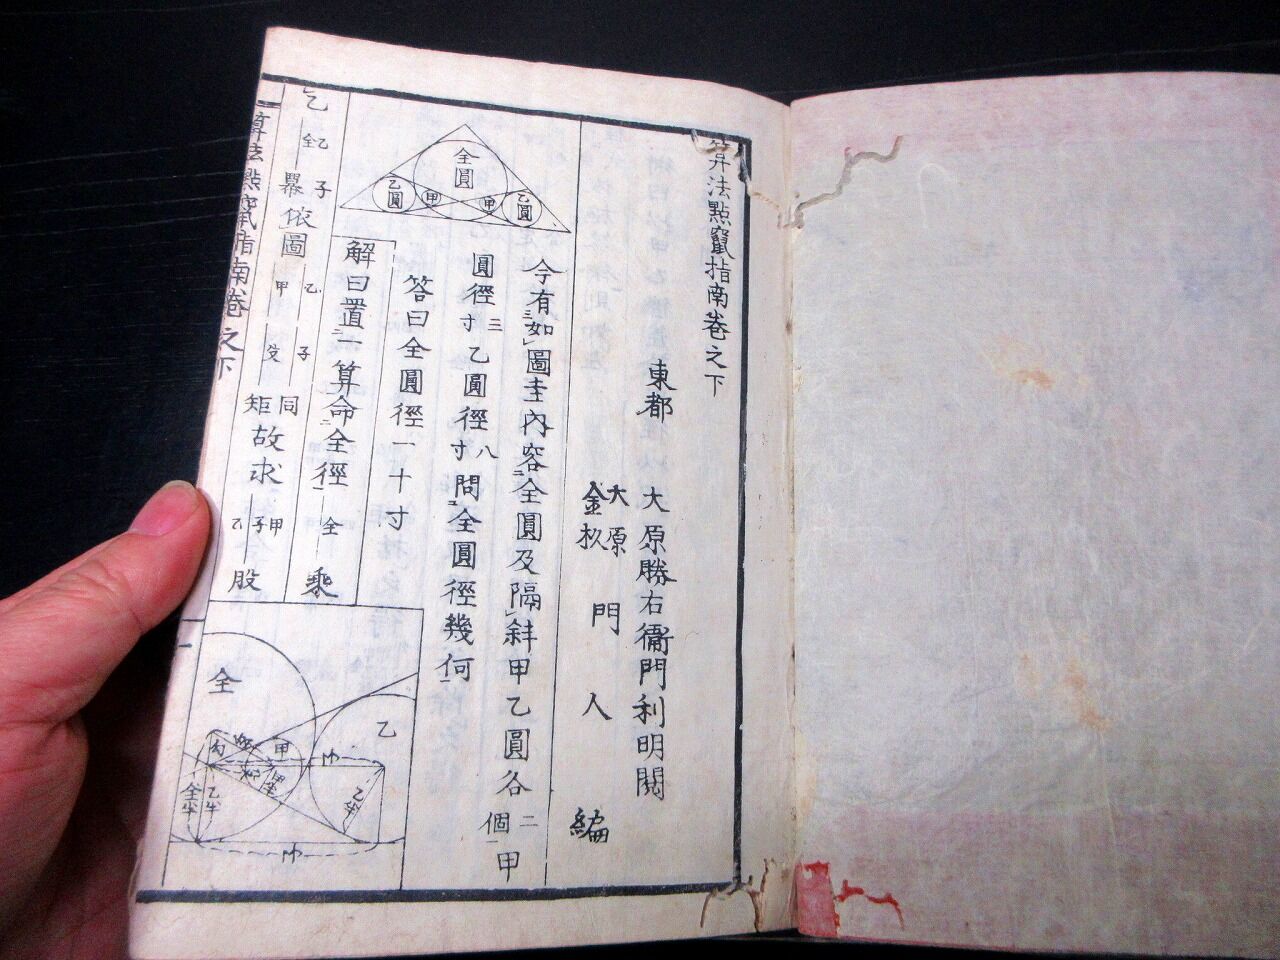 算法點竄指南卷之下
東都
大原勝右衞門利明閲
大原
金杦
門人
編
今有如圖圭内容全圓及隔斜甲乙圓各二個甲
圓徑三寸乙圓徑八寸問全圓徑幾何
答曰全圓徑一十寸
解曰置一算命全徑
全
乘
乙
全乙
子
冪依圖
甲
乙
子
同矩故求
子甲
乙
股
算法點竄指南卷之下
一
全圓
乙圓
甲
甲
乙圓
全
乙
甲
勾
中
全半
乙半
乙半
巾